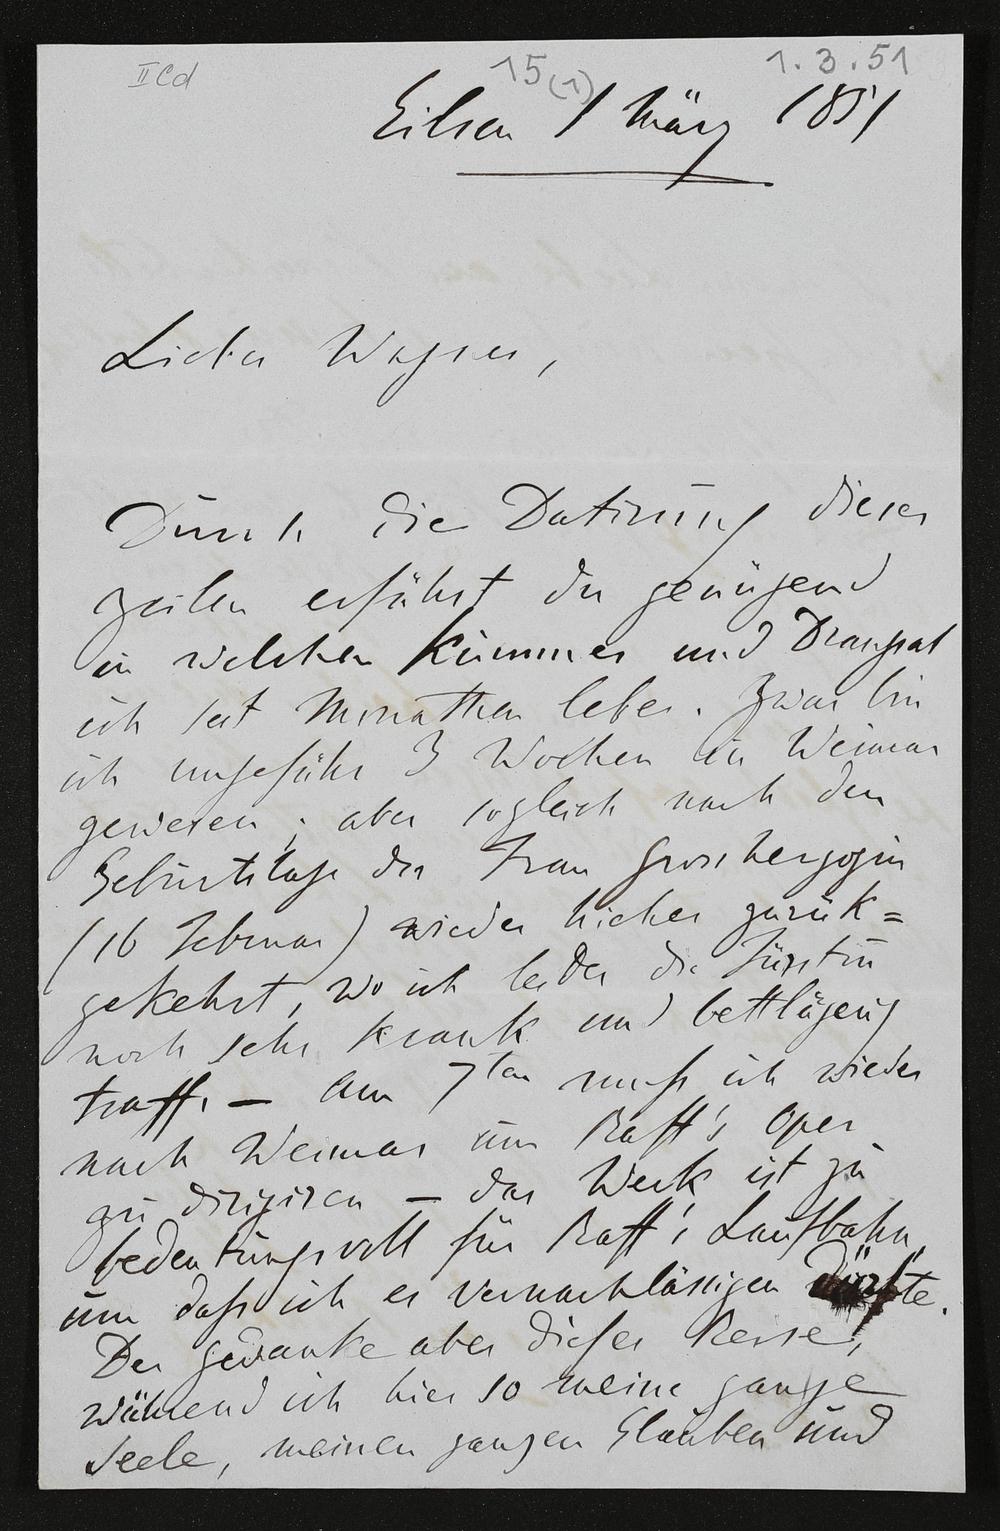 II Cd
15(1)
1.3.51
Eilsen 1 März 1851
Lieber Wagner,
Durch die Datirung dieser
Zeilen erfährst du genügend
in welchen Kümmer und Drangsal
ich seit Monathen lebe. Zwar bin
ich ungefähr 3 Wochen in Weimar
gewesen; aber sogleich nach den
Gebürtstage der Frau Grossherzogin
(16 Februar) wieder hieher zurük=
gekehrt, wo ich leider die Fürstin
noch sehr krank und bettlägerig
traff. — Am 7ten muß ich wieder
nach Weimar um Raff's Oper
zu dirigiren — das Werk ist zu
bedeutungsvoll für Raff's Laufbahn,
um daß ich es vernachlässigen dürfte.
Der Gedanke aber dieser Reise,
während ich hier so meine ganze
Seele, meinen ganzen Glauben und